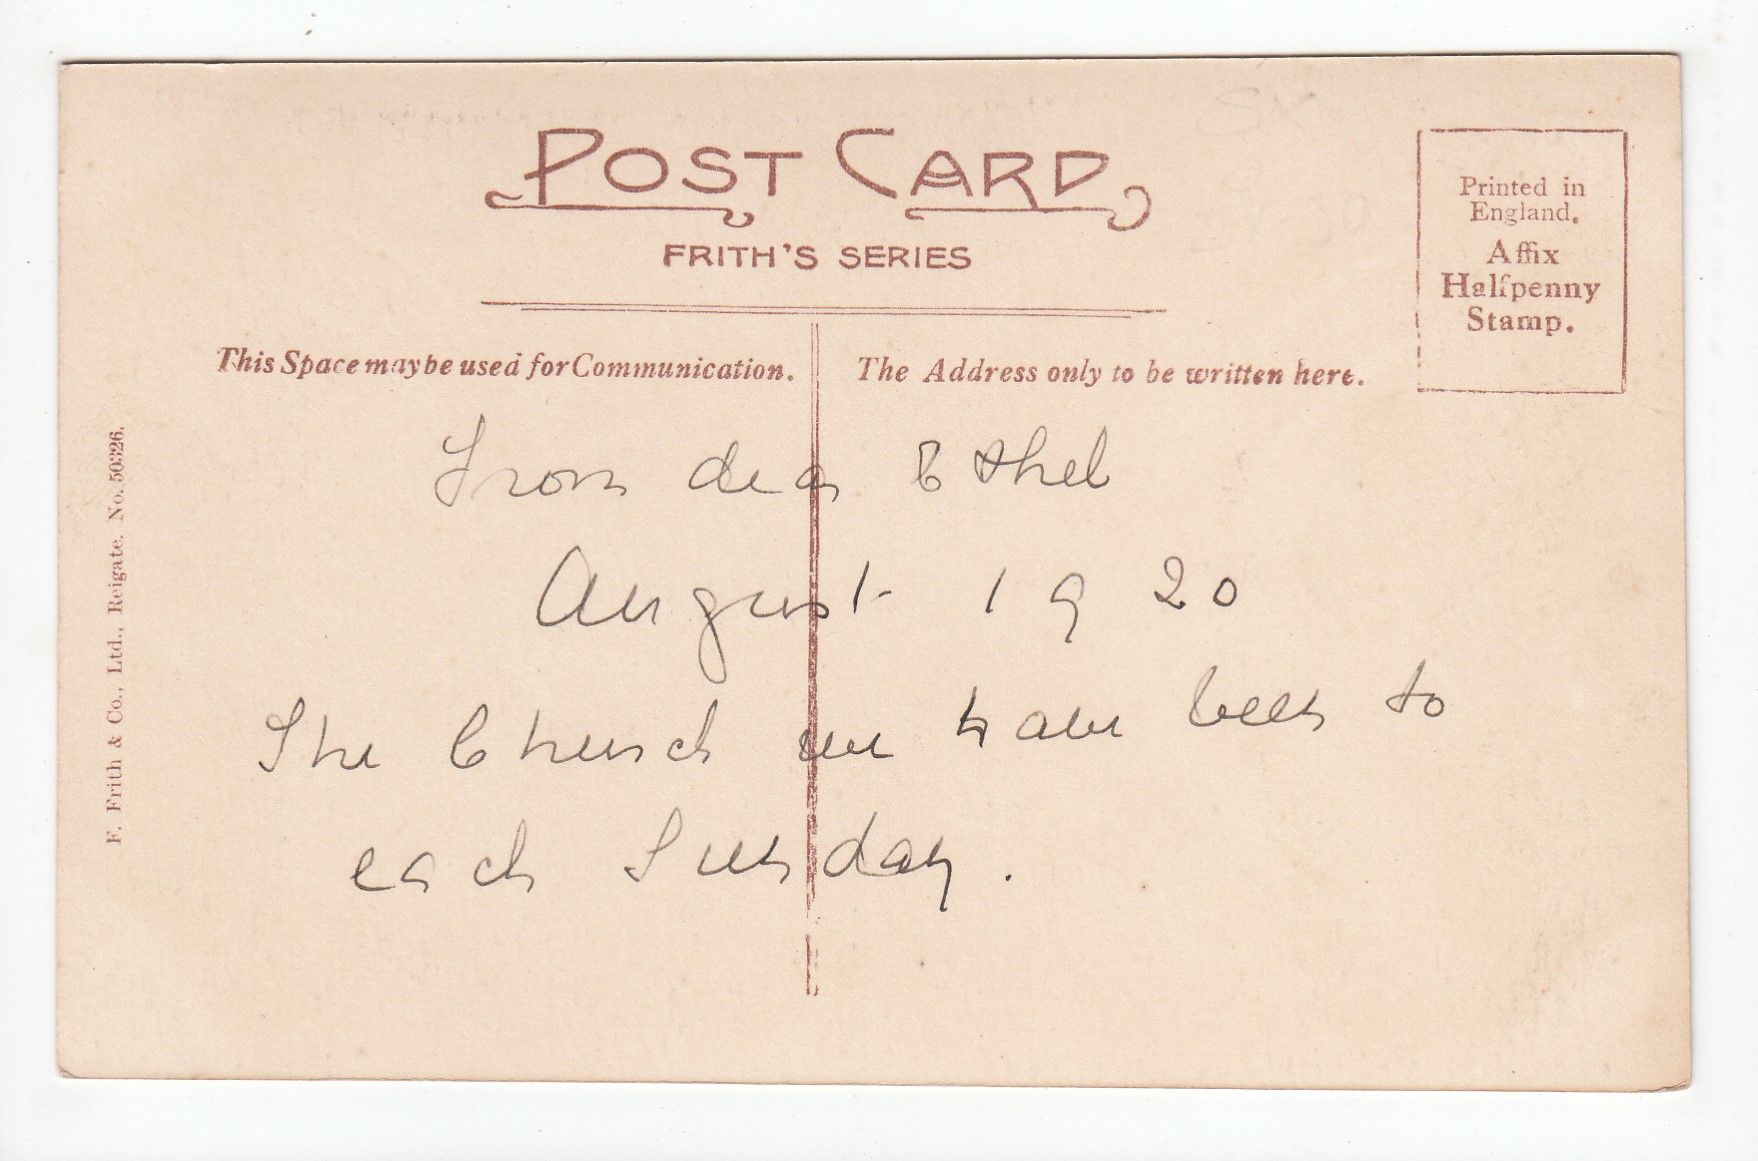 POST CARD
FRITH'S SERIES
Printed in
England.
Affix
Halfpenny
Stamp.
This Space may be used for Communication.
The Address only to be written here.
From dear Ethel
August 1920
The Church we have been to
each Sunday.
F. Frith & Co., Ltd., Reigate. No. 50326.